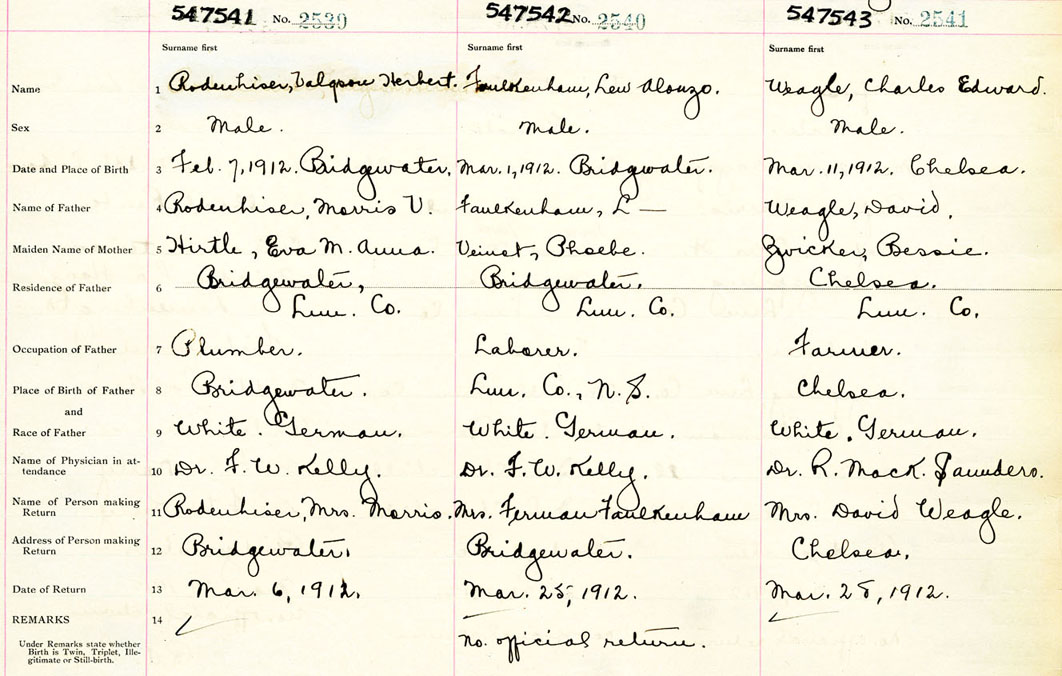 547541 No. 2539 547542 No. 2540 547543 No. 2541
Surname first Surname first Surname first
Name 1 Rodenhiser, Herbert. Faulkenham, Lew Alonzo. Weagle, Charles Edward.
Sex 2 Male. Male. Male.
Date and Place of Birth 3 Feb. 7, 1912. Bridgewater, Mar. 1, 1912. Bridgewater. Mar. 11, 1912. Chelsea.
Name of Father 4 Rodenhiser, Morris V. Faulkenham, L — Weagle, David.
Maiden Name of Mother 5 Hirtle, Eva M. Anna. Veinot, Phoebe. Zwicker, Bessie.
Residence of Father 6 Bridgewater, Bridgewater. Chelsea.
Lun. Co. Lun. Co. Lun. Co.
Occupation of Father 7 Plumber. Laborer. Farmer.
Place of Birth of Father 8 Bridgewater. Lun. Co., N.S. Chelsea.
and
Race of Father 9 White. German. White. German. White. German.
Name of Physician in at-
tendance 10 Dr. F. W. Kelly. Dr. F. W. Kelly. Dr. R. Mack. Saunders.
Name of Person making
Return 11 Rodenhiser, Mrs. Morris. Mrs. Ferman Faulkenham Mrs. David Weagle.
Address of Person making
Return 12 Bridgewater. Bridgewater. Chelsea.
Date of Return 13 Mar. 6, 1912. Mar. 25, 1912. Mar. 28, 1912.
REMARKS 14
Under Remarks state whether
Birth is Twin, Triplet, Ille-
gitimate or Still-birth.
no. official return.